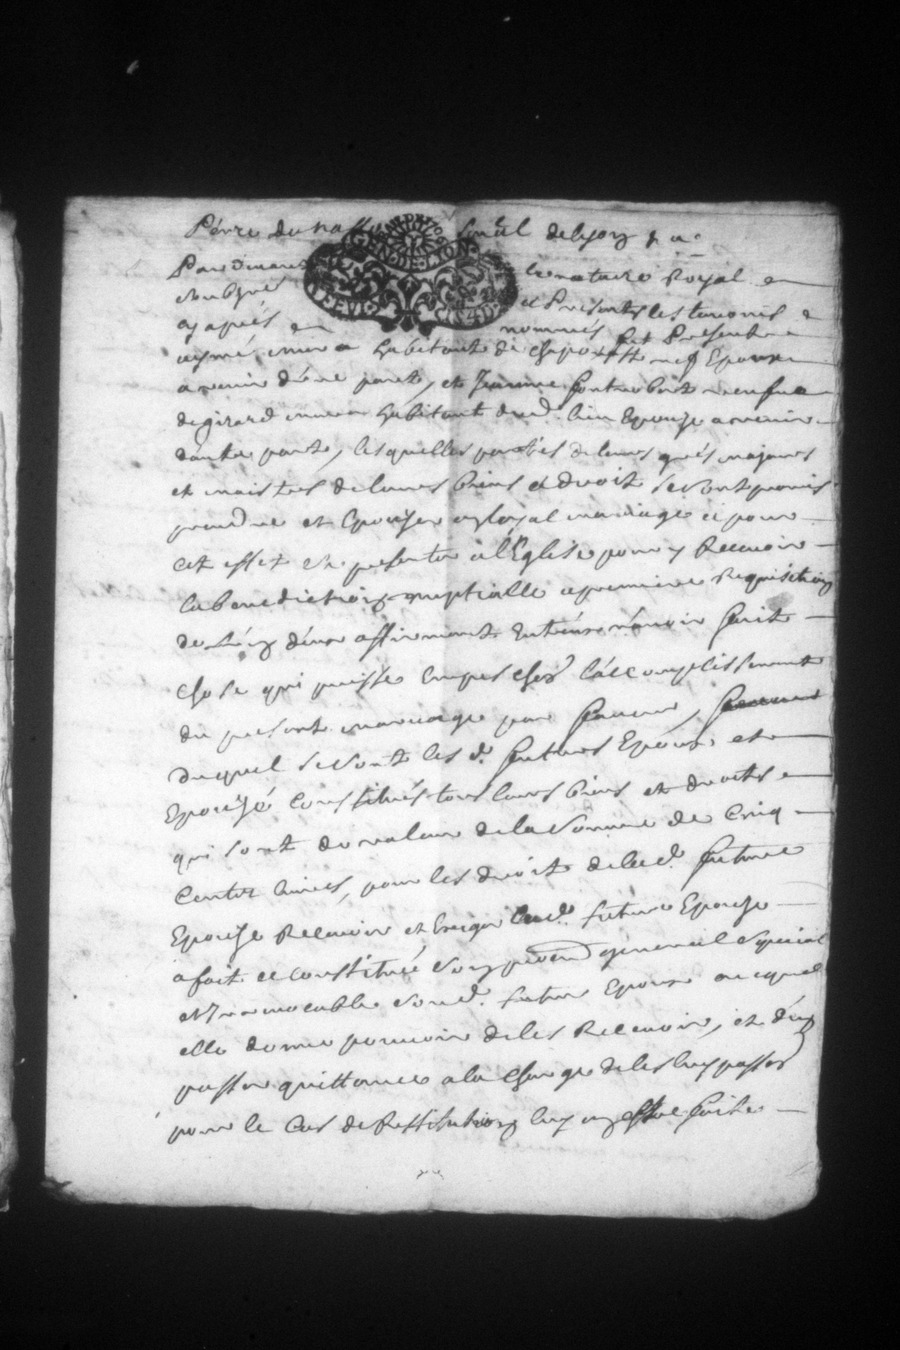 GEN DE LYON
Pardevant le notaire Royal
soubzné et Presents les temoins
apres nommés fut Present
aymé habitant de
avenir d'une part, et Jeanne veufve
de girard habitant dud. lieu Epouze avenir
d'autre part, lesquelles parties de leurs grés majeurs
et maistres de leurs biens et droit se sont promis
prendre et Epouzer en loyal mariage et pour
cet effet se presenter a l'Eglise pour y Recevoir
la benediction nuptialle a premiere Requisition
de l'un d'eux affirmant Entr'eux n'avoir fait
chose qui puisse empescher l'accomplissement
du present mariage par faveur,
duquel se sont les d. futurs Epoux et
Epouze constitués tous leurs biens et droits
qui sont de valeur de la somme de Cinq
Cents livres, pour les droit de lad. future
Epouze Recevoir et Exiger lad. future Epouze
a fait et constitué son procur general special
et irrevocable sond. futur Epoux auquel
elle donne pouvoir de les Recevoir, et d'en
passer quittance a la charge de les luy passer
pour le Cas de Restitution luy en estre faite